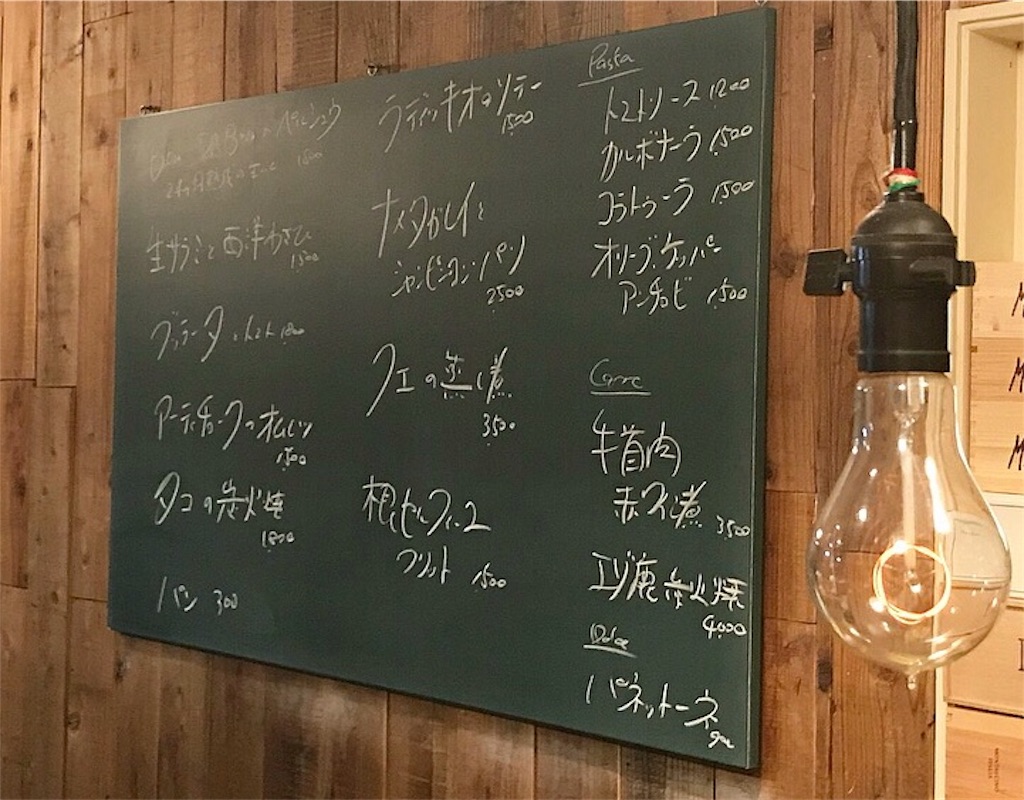 ペルシュウ
1800
生サラミと西洋わさび
1500
ブッラータ・トマト 1800
アーティチョークのオムレツ
1500
タコの炭火焼
1800
パン 300
ラディッキオのソテー
1500
シャンピニョン・パン
2500
クエの煮
3500
フリット 1500
Pasta
トマトソース 1200
カルボナーラ 1500
コラトゥーラ 1500
オリーブ・ケッパー
アンチョビ 1500
Carne
牛首肉
赤ワイン煮 3500
エゾ鹿 炭火焼
4000
Dolce
パネットーネ